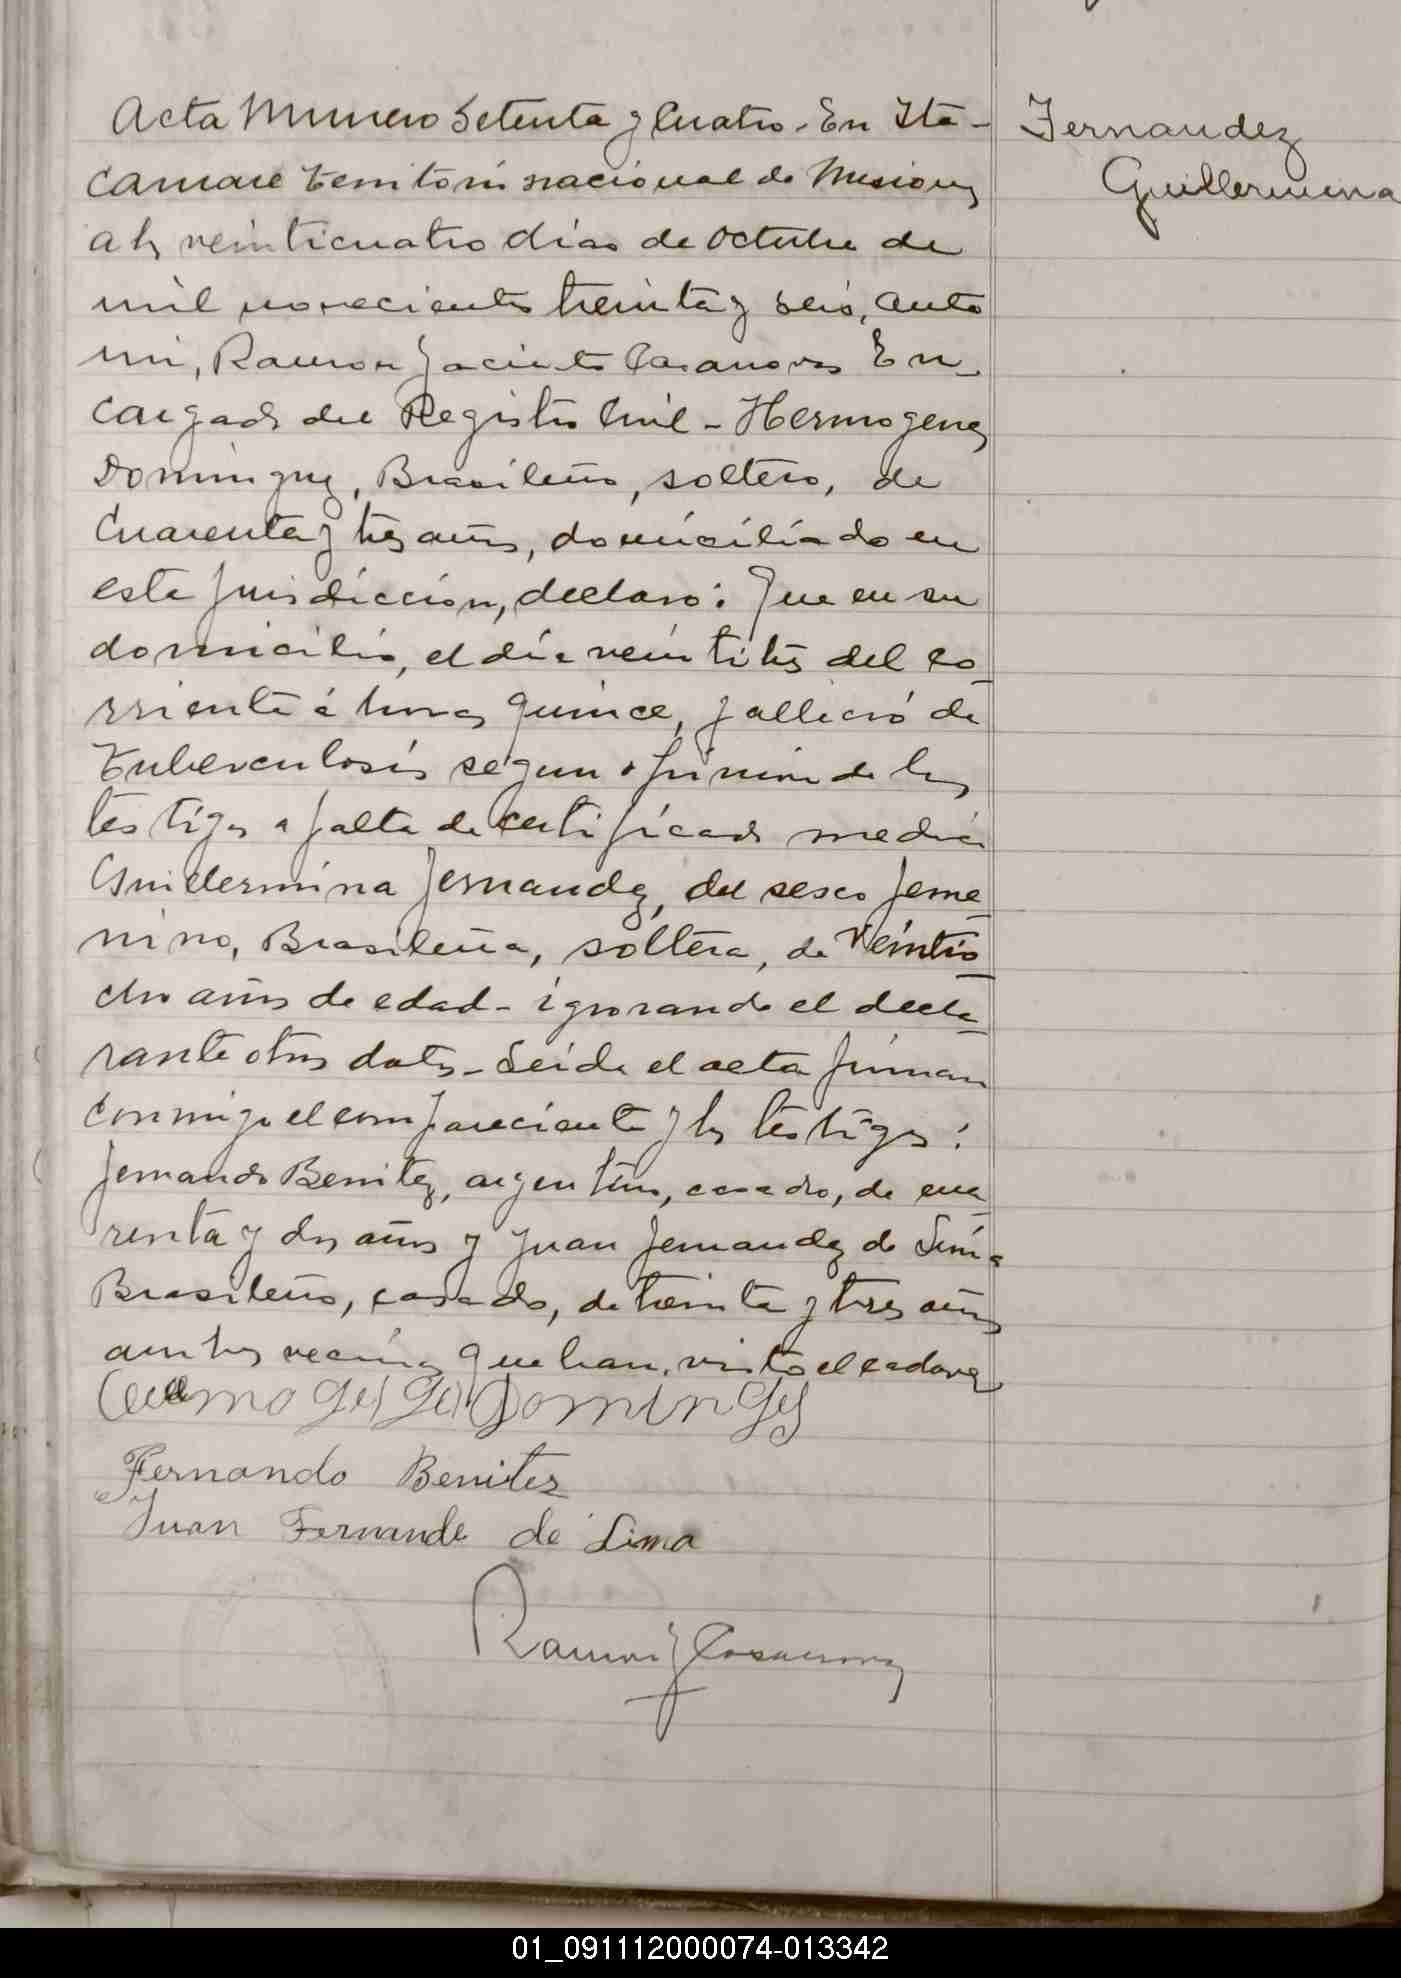 Acta Numero Setenta y Cuatro. En Ita-
Fernandez
Guillermina
camare territorio nacional de Misiones
a los veinticuatro dias de octubre de
mil novecientos treinta y seis, ante
mi, Ramon Jacinto Casanova En-
cargado del Registro Civil - Hermogenes
Dominguez, Brasileño, soltero, de
cuarenta y tres años, domiciliado en
esta jurisdiccion, declaro: Que en su
domicilio, el dia veintitres del co-
rriente á horas quince, fallecio de
tuberculosis según opinion de los
testigos a falta de certificado medico
Guillermina Fernandez, del sexo feme-
nino, Brasileña, soltera, de veintio-
cho años de edad - ignorando el decla-
rante otros datos - Leida el acta firman
conmigo el compareciente y los testigos:
Fernando Benitez, argentino, casado, de cua-
renta y dos años y Juan Fernandez de Lima
Brasileño, casado, de treinta y tres años
ambos vecinos que han visto el cadaver
Domingues
Fernando Benitez
Juan Fernande de Lima
Ramon J Casanova
01_091112000074-013342